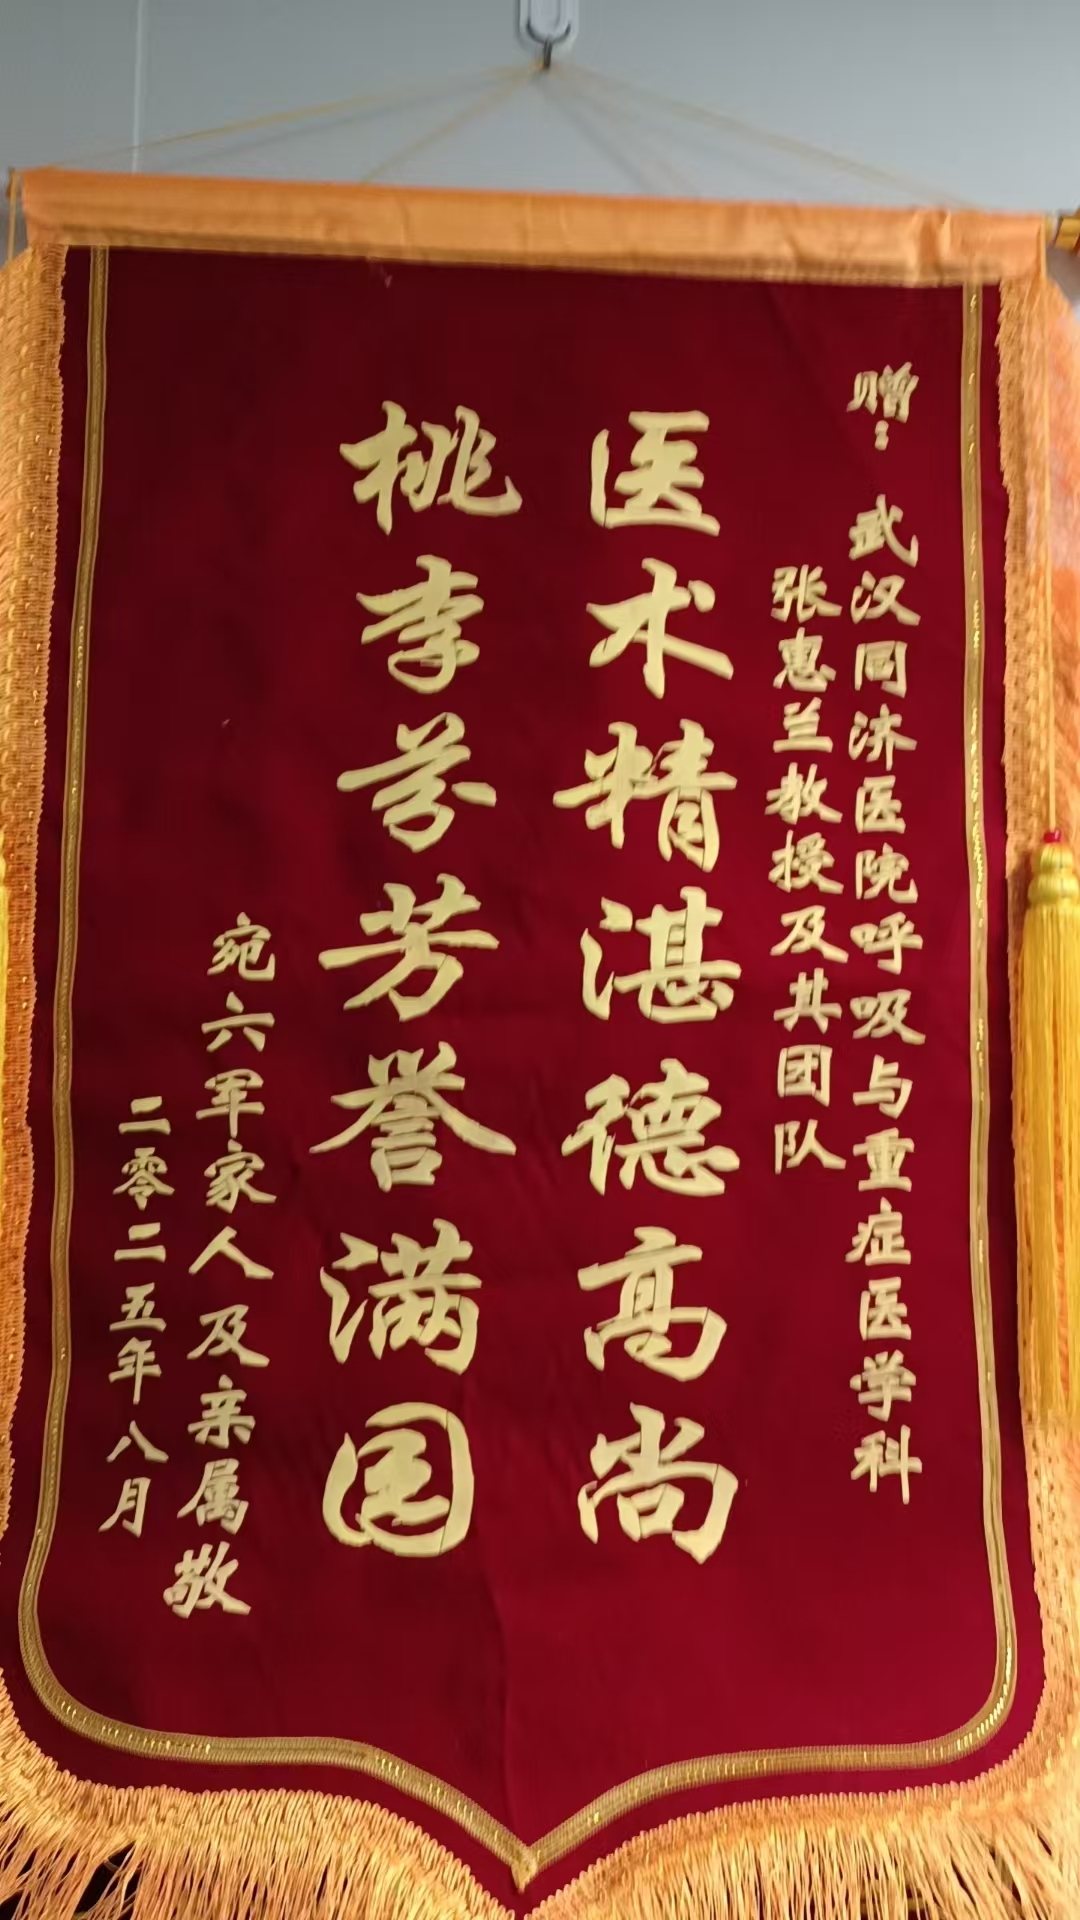 赠：武汉同济医院呼吸与重症医学科
张惠兰教授及其团队
医术精湛德高尚
桃李芬芳誉满园
宛六军家人及亲属敬
二零二五年八月